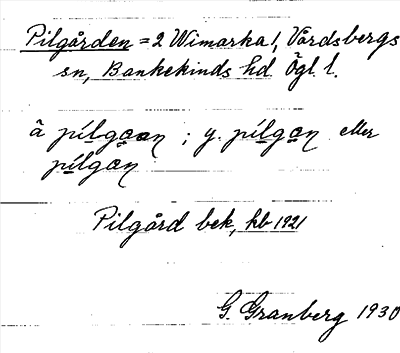 Pilgården = 2 Wimarka 1, Vårdsbergs
sn, Bankekinds hd Ögl. l.
ä pílgaan ; y. pílgan eller
pílgan
Pilgård bek, hb 1921
G. Granberg 1930